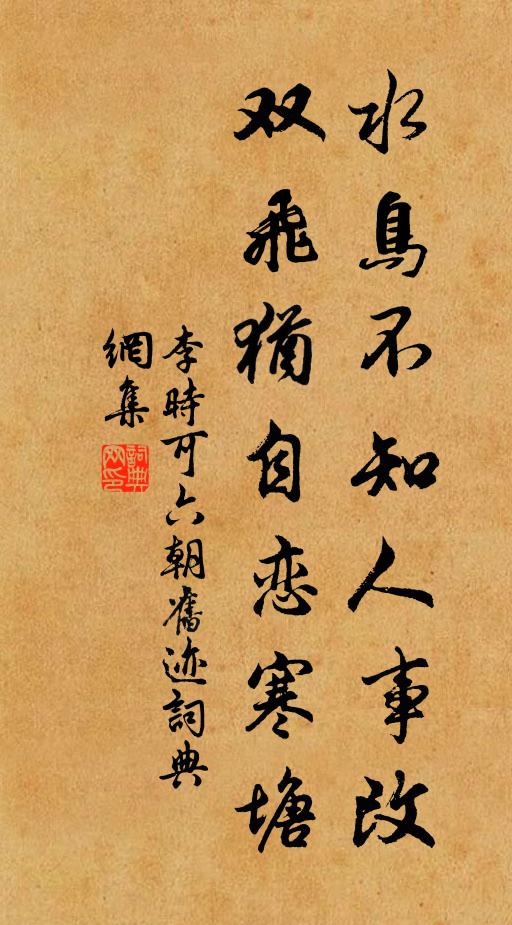 水鳥不知人事改
双飛猶自恋寒塘
李時可六朝舊迹詞典
網集
詞典網印